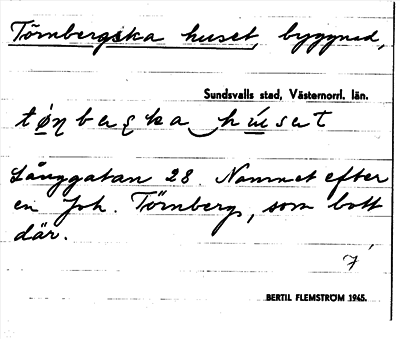 Törnbergska huset, byggnad,
Sundsvalls stad, Västernorrl. län.
Långgatan 28. Namnet efter
en Joh. Törnberg, som bott
där.
BERTIL FLEMSTRÖM 1945.